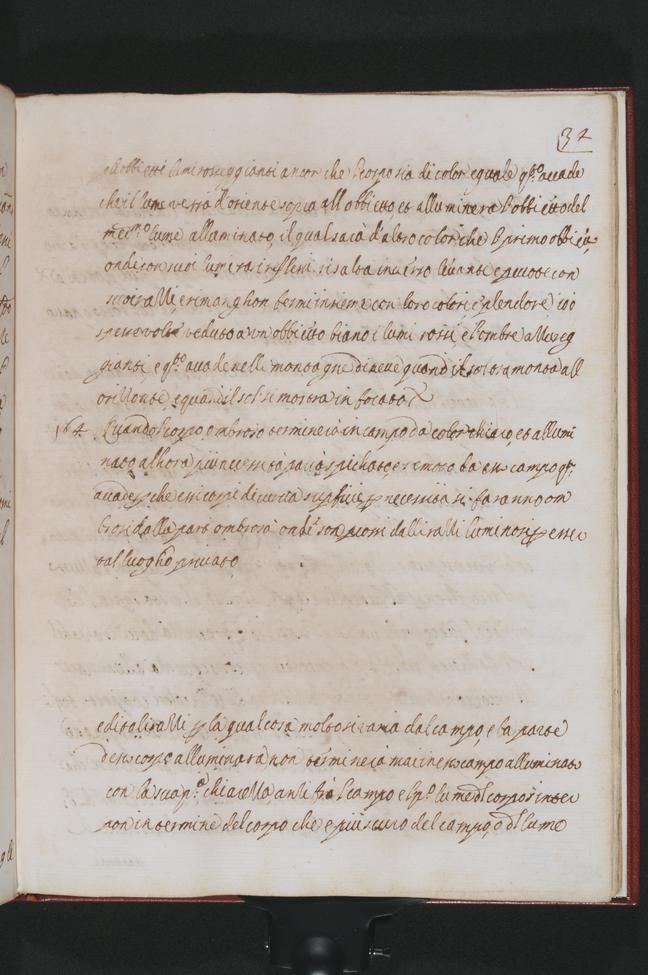 34
obbietti lumi rosseggianti ancor che il corpo sia di color equale q.to accade
che il lume verra d'oriente sopra all obbietto et alluminera l'obbietto del
med.mo lume alluminato, il qual sara d'altro color che il primo obbietto,
onde con suoi lumi era reflessi risalta in verso levante e percote con
suoi ralli, e rimanghon fermi insieme con loro colori e splendore io ò
spesse volte veduto a un obbietto biancho i lumi rossi, e l'ombre azureg
gianti, e q.to accade nelle montagne di neve quando il sol tramonta all
orillonte, e quand il sol si mostra infocato
164 Quando il corpo ombroso terminera in campo da color chiaro, et allumi
nato alhora p necessita parà spichato, e remoto da esso campo q.to
accade p che essi corpi di curva superficie p necessita si faranno om
brosi dalla parte ombrosa onde son percossi dalli ralli luminosi p esser
tal luogho privato
edi tali ralli p la qual cosa molto si varia dal campo, e la parte
d'esso corpo alluminata non terminera mai in esso campo alluminato
con la sua p.a chiarezza anzi fra il campo e il p.o lume del corpo s'inter
pon un termine del corpo che è piu scuro del campo, o del lume